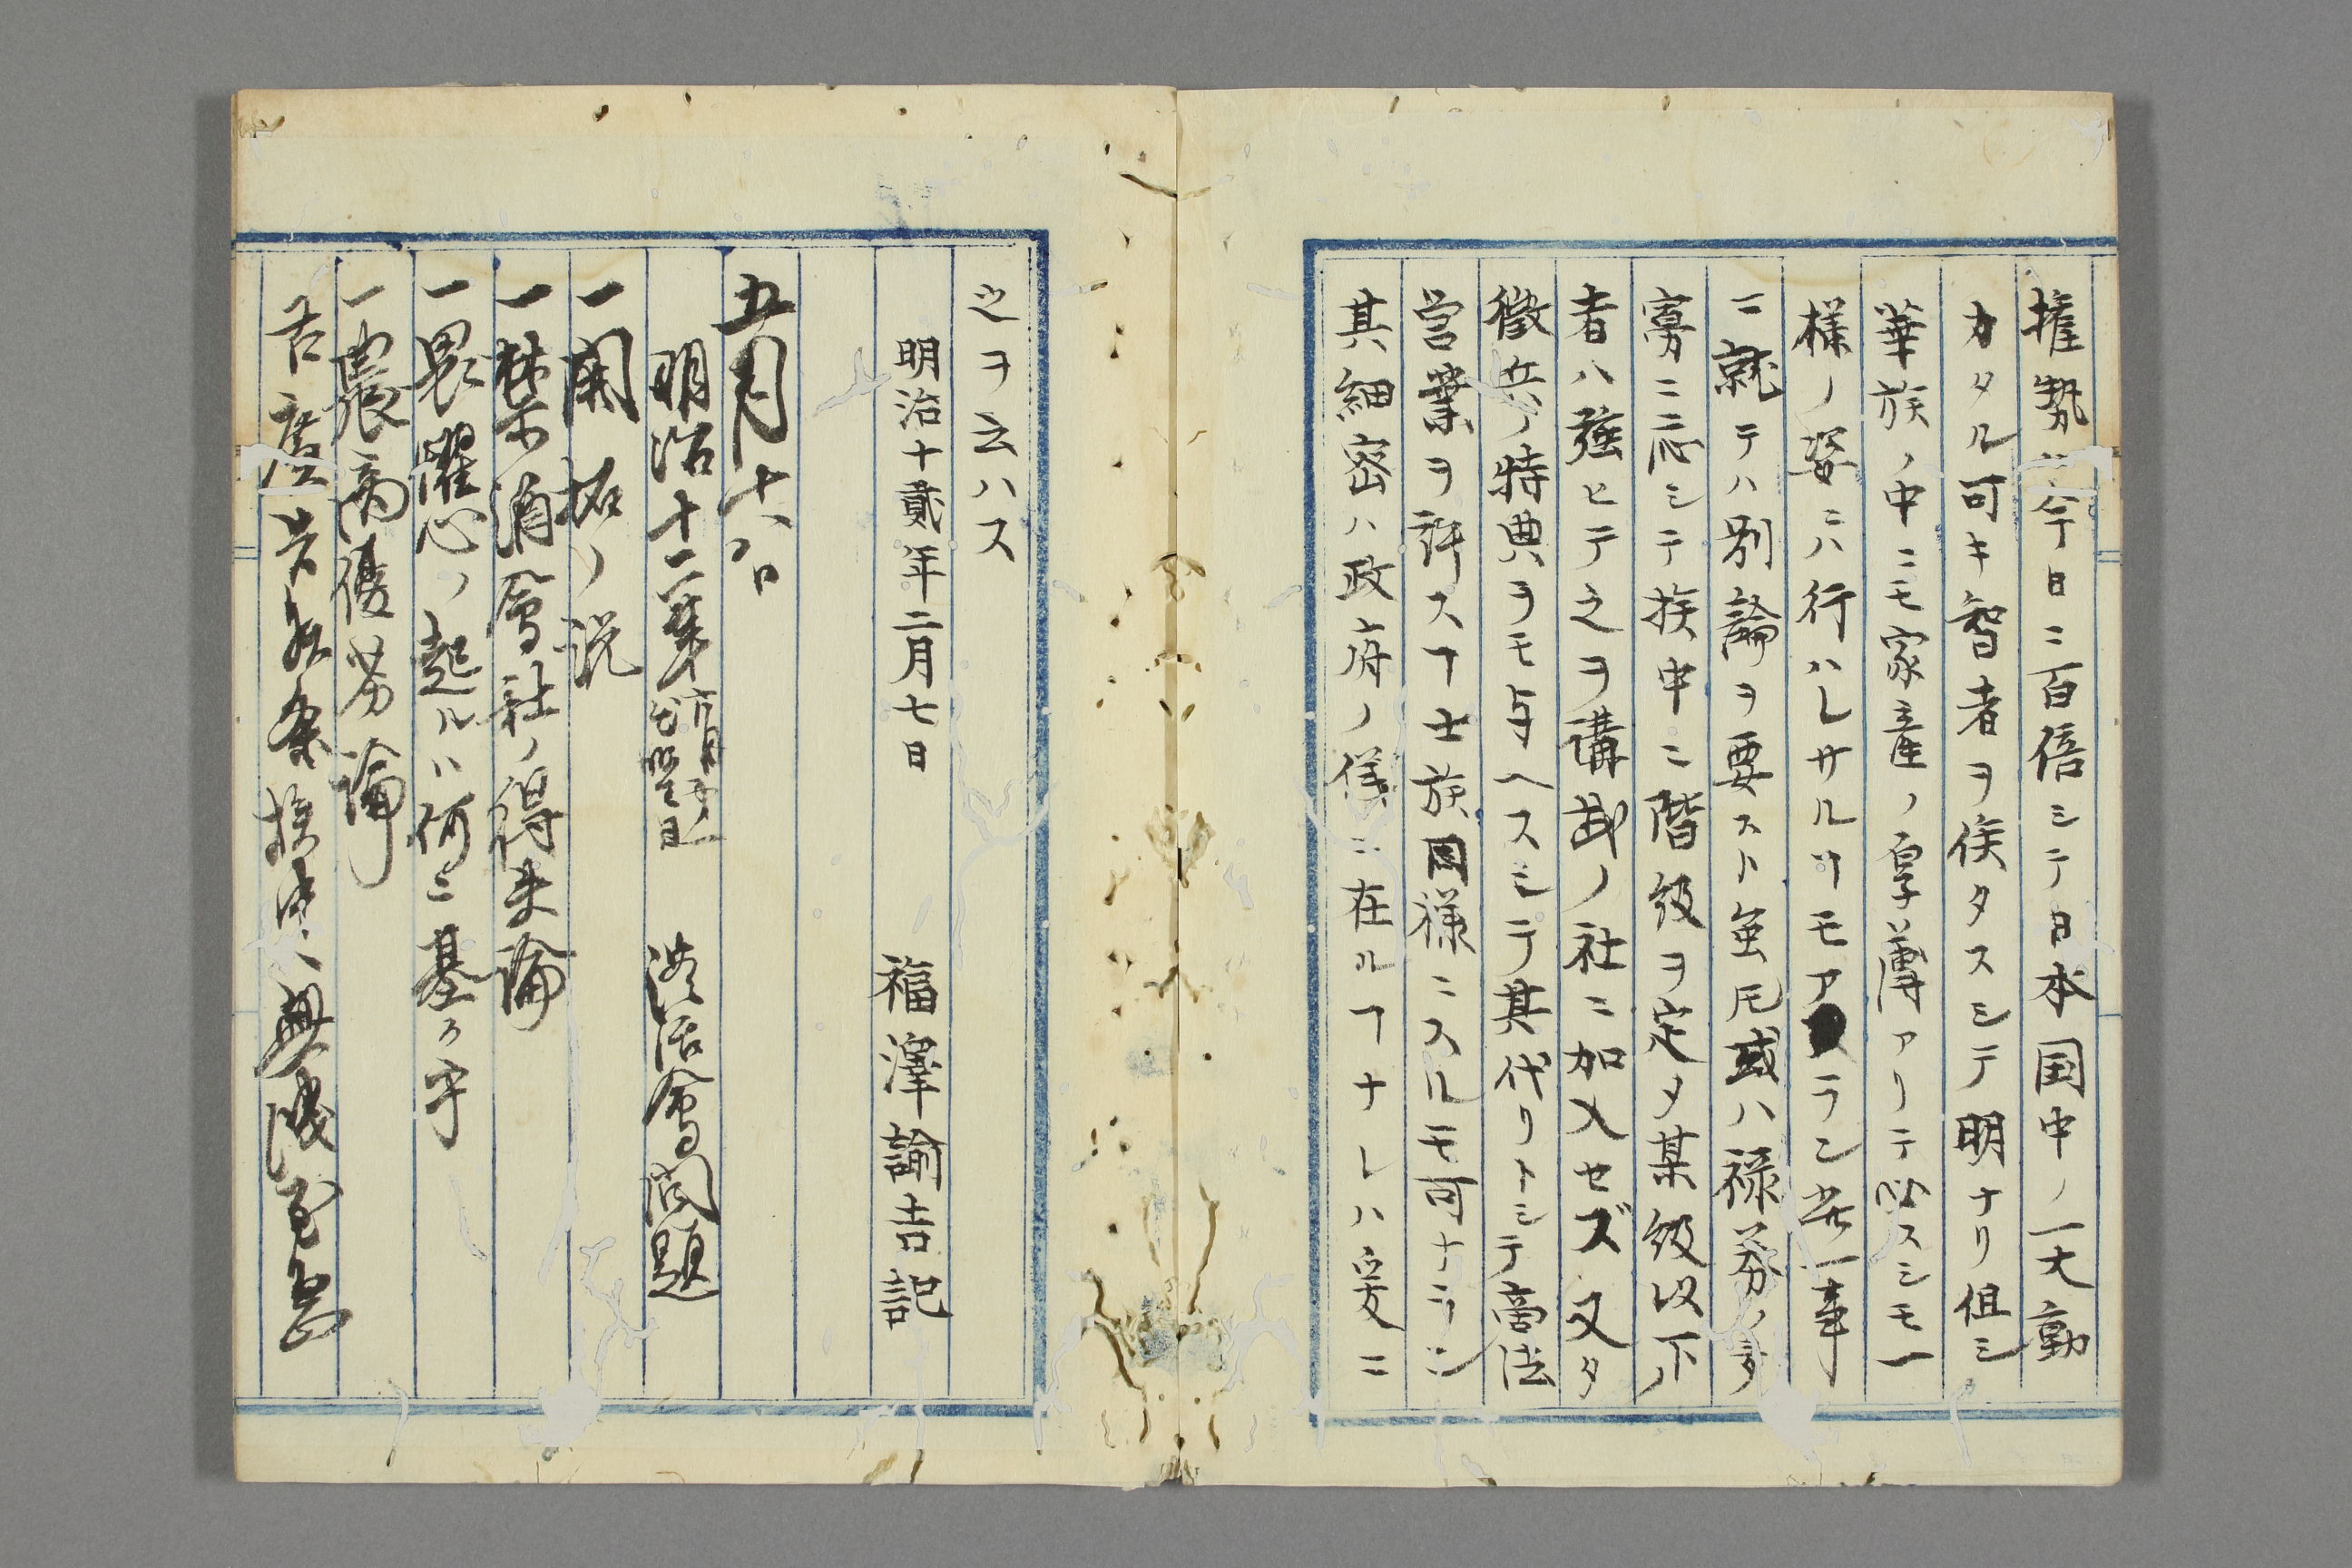 権勢ハ今日ニ百倍シテ日本国中ノ一大勲
カタル可キ智者ヲ俟タスシテ明ナリ但シ
華族ノ中ニモ家産ノ厚薄アリテ必スシモ一
様ノ姿ニハ行ハレサルヿモアラン此一事
ニ就テハ別論ヲ要スト雖𪜈或ハ禄券ノ多
寡ニ応シテ族中ニ階級ヲ定メ某級以下ノ
者ハ強ヒテ之ヲ講武ノ社ニ加入セズ又タ
徴兵ノ特典ヲモ与ヘスシテ其代リトシテ商法
営業ヲ許スヿ士族同様ニスルモ可ナラン
其細密ハ政府ノ儀ニ在ルヿナレハ爰ニ
之ヲ云ハス
明治十貳年二月七日 福澤諭吉記
五月十八日
明治十二年 會問題
一開拓ノ説
一禁酒會社ノ得失論
一畏懼心ノ起ルハ何ニ基ク乎
一農商優劣論